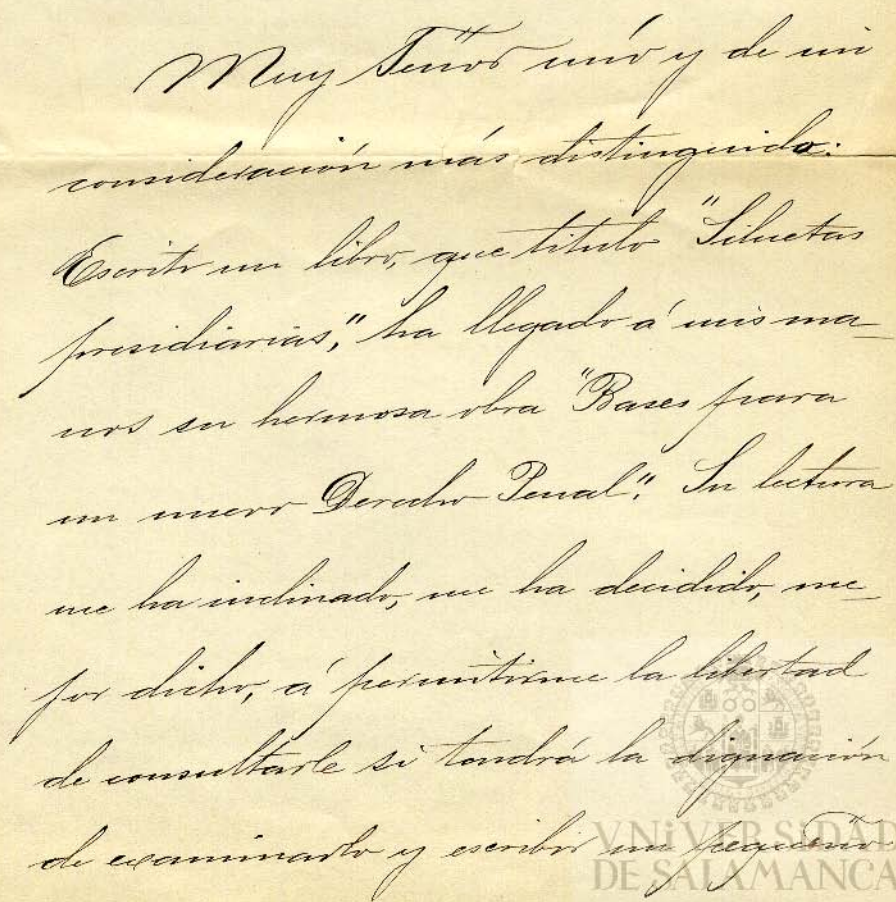 Muy Señor mío y de mi
consideración más distinguida:
Escrito un libro, que titulo "Siluetas
presidiarias", ha llegado á mis ma-
nos su hermosa obra "Bases para
un nuevo Derecho Penal". Su lectura
me ha inclinado, me ha decidido, me-
jor dicho, á permitirme la libertad
de consultarle si tendrá la dignación
de examinarlo y escribir un pequeño
VNiVERSiDAD
DE SALAMANCA